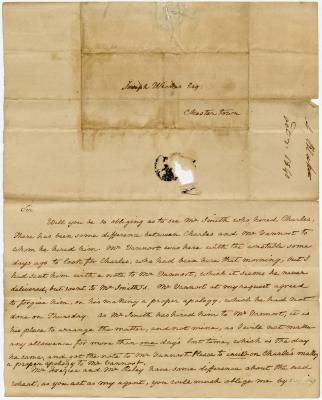 Joseph Wickes Esq.
Chester town
Sir
Will you be so obliging as to see Mr Smith who hired Charles,
There has been some difference between Charles and Mr Vannort to
whom he hired him. Mr Vannort was here with the constable some
days ago to look for Charles, who had been here that morning, but I
had sent him with a note to Mr Vannort, which it seems he never
delivered, but went to Mr Smith's. Mr Vannort at my request agreed
to forgive him, on his making a proper apology, which he had not
done on Thursday. As Mr Smith has hired him to Mr Vannort, it is
his place to arrange the matter, and not mine, as I will not make
any allowance for more than one day's lost time, which is the day
he came, and not the note to Mr Vannort. Please to insist on Charles making
a proper apology to Mr Vannort.
Mr and Mr have some difference about the seed
wheat, as you act as my agent, you will much oblige me by